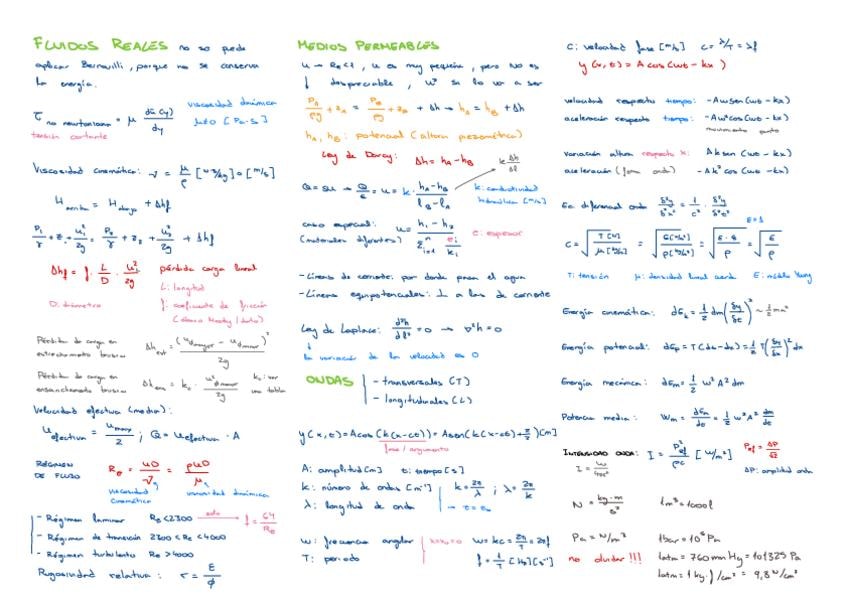 FLUIDOS REALES no se puede
aplicar Bernoulli, porque no se conserva
la energía.
τ no newtoniano = μ dū(y)/dy
viscosidad dinámica
μ≥0 [Pa·s]
tensión cortante
Viscosidad cinemática: ν = μ/ρ [m³/kg] = [m²/s]
H arriba = H abajo + Δhf
P₁/γ + z₁ + u₁²/2g = P₂/γ + z₂ + u₂²/2g + Δhf
Δhf = f · L/D · u²/2g
pérdida carga lineal
L: longitud
D: diámetro
f: coeficiente de fricción
(ábaco Moody / dato)
Pérdida de carga en
estrechamiento brusco
Δh est = (u dmayor - u dmenor)²/2g
Pérdida de carga en
ensanchamiento brusco
Δh ens = k₀ · u² dmenor/2g
k₀: ver
una tabla
Velocidad efectiva (media):
u efectiva = u max/2 ; Q = u efectiva · A
RÉGIMEN
DE FLUJO
Re = uD/ν = ρuD/μ
viscosidad
cinemática
viscosidad dinámica
- Régimen laminar Re<2300 → f = 64/Re
- Régimen de transición 2300<Re<4000
- Régimen turbulento Re>4000
Rugosidad relativa: r = ε/ϕ
MEDIOS PERMEABLES
u → Re<1, u es muy pequeña, pero NO es
despreciable, u² si lo va a ser
P_A/ρg + z_A = P_B/ρg + z_B + Δh → h_A = h_B + Δh
h_A, h_B: potencial (altura piezométrica)
Ley de Darcy: Δh = h_A - h_B
k Δh/Δl
Q = Su → Q/S = u = k · (h_A - h_B)/(l_B - l_A)
k: conductividad
hidráulica [m/s]
caso especial:
(materiales diferentes)
u = (h₁ - h₂)/(Σⁿᵢ₌₁ eᵢ/kᵢ)
e: espesor
- Líneas de corriente: por donde pasa el agua
- Líneas equipotenciales: ⊥ a las de corriente
Ley de Laplace: d²h/dl² = 0 → ∇²h = 0
la variación de la velocidad es 0
ONDAS
- transversales (T)
- longitudinales (L)
y(x,t) = A cos(k(x-ct)) = A sen(k(x-ct) + π/2) [m]
fase / argumento
A: amplitud [m] t: tiempo [s]
k: número de ondas [m⁻¹] k = 2π/λ ; λ = 2π/k
λ: longitud de onda
w: frecuencia angular w = kc = 2π/T = 2πf
T: periodo f = 1/T [Hz] [s⁻¹]
c: velocidad fase [m/s] c = λ/T = λf
y(x,t) = A cos(wt - kx)
velocidad respecto tiempo: -Aw sen(wt - kx)
aceleración respecto tiempo: -Aw² cos(wt - kx)
movimiento punto
variación altura respecto x: Ak sen(wt - kx)
aceleración (forma onda) -Ak² cos(wt - kx)
Ec. diferencial onda δ²y/δx² = 1/c² · δ²y/δt²
c = √(T [N]/μ [kg/m]) = √(E [N/m²]/ρ [kg/m³]) = √(E · S/ρ) = √(E/ρ)
T: tensión μ: densidad lineal cuerda E: módulo Young
Energía cinemática: dEₖ = 1/2 dm (δy/δt)² ~ 1/2 mu²
Energía potencial: dEp = T(ds - dx) = 1/2 T (δy/δx)² dx
Energía mecánica: dEm = 1/2 w² A² dm
Potencia media: Wm = dEm/dt = 1/2 w² A² dm/dt
INTENSIDAD ONDA: I = P²ef/ρc [W/m²]
Pef = ΔP/√2
I = W/4πr²
ΔP: amplitud onda
N = kg·m/s²
1m³ = 1000l
Pa = N/m²
no olvidar!!!
1bar = 10⁵ Pa
1atm = 760 mm Hg = 101325 Pa
1atm = 1 kg·f/cm² = 9,8 N/cm²